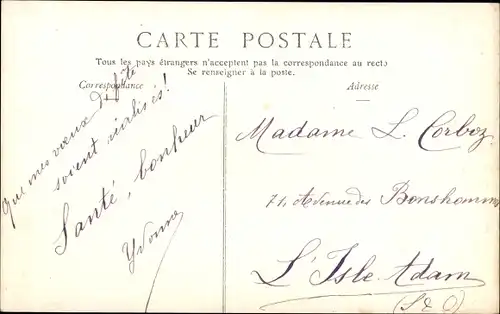 CARTE POSTALE
Tous les pays étrangers n'acceptent pas la correspondance au recto
Se renseigner à la poste.
Correspondance
Adresse
Que mes vœux de fête
soient réalisés!
Santé, bonheur
Yvonne
Madame L. Corboz
71, Avenue des Bonshomm
L'Isle-Adam
(S&O)